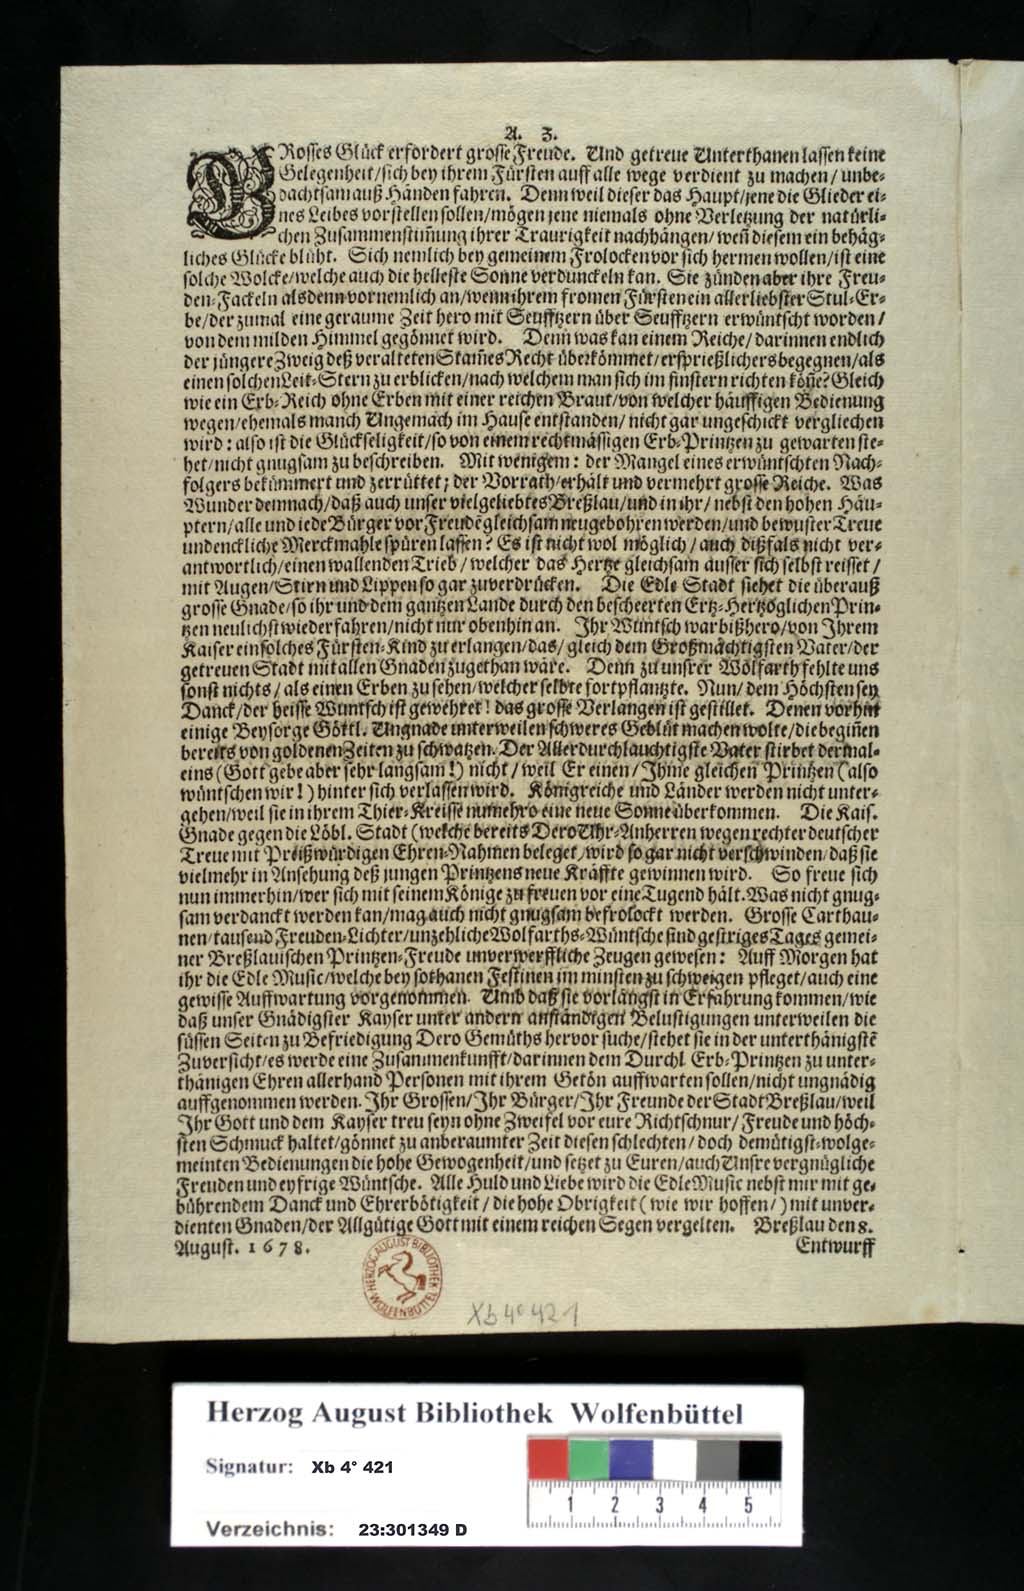 A. Z.
GRosses Glück erfordert grosse Freude. Und getreue Unterthanen lassen keine
Gelegenheit/sich bey ihrem Fürsten auff alle wege verdient zu machen/ unbe-
dachtsam auß Händen fahren. Denn weil dieser das Haupt/jene die Glieder ei-
nes Leibes vorstellen sollen/mögen jene niemals ohne Verletzung der natürli-
chen Zusammenstim̃ung ihrer Traurigkeit nachhängen/ weñ diesem ein behäg-
liches Glücke blüht. Sich nemlich bey gemeinem Frolocken vor sich hermen wollen/ist eine
solche Wolcke/welche auch die helleste Sonne verdunckeln kan. Sie zünden aber ihre Freu-
den-Fackeln alsdenn vornemlich an/wenn ihrem fromen Fürsten ein allerliebster Stul-Er-
be/der zumal eine geraume Zeit hero mit Seufftzern über Seufftzern erwüntscht worden/
von dem milden Himmel gegönnet wird. Denn was kan einem Reiche/ darinnen endlich
der jüngere Zweig deß veralteten Stam̃es Recht überkömmet/ersprießlichers begegnen/als
einen solchen Leit-Stern zu erblicken/nach welchem man sich im finstern richten kön̄e? Gleich
wie ein Erb-Reich ohne Erben mit einer reichen Braut/von welcher häuffigen Bedienung
wegen/ehemals manch Ungemach im Hause entstanden/ nicht gar ungeschickt verglichen
wird: also ist die Glückseligkeit/so von einem rechtmässigen Erb-Printzen zu gewarten ste-
het/nicht gnugsam zu beschreiben. Mit wenigem: der Mangel eines erwüntschten Nach-
folgers bekümmert und zerrüttet; der Vorrath/erhält und vermehrt grosse Reiche. Was
Wunder demnach/daß auch unser vielgeliebtes Breßlau/und in ihr/ nebst den hohen Häu-
ptern/alle und iede Bürger vor Freudē gleichsam neugebohren werden/und bewuster Treue
undenckliche Merckmahle spüren lassen? Es ist nicht wol möglich/ auch dißfals nicht ver-
antwortlich/einen wallenden Trieb/ welcher das Hertze gleichsam äusser sich selbst reisset/
mit Augen/Stirn und Lippen so gar zuverdrücken. Die Edle Stadt siehet die überauß
grosse Gnade/so ihr und dem gantzen Lande durch den bescheerten Ertz-Hertzoglichen Prin-
tzen neulichst wiederfahren/nicht nur obenhin an. Ihr Wuntsch war bißhero/von Ihrem
Kaiser ein solches Fürsten-Kind zu erlangen/das/ gleich dem Großmächtigsten Vater/der
getreuen Stadt mit allen Gnaden zugethan wäre. Denn zu unsrer Wolfarth fehlte uns
sonst nichts/ als einen Erben zu sehen/welcher selbte fortpflantzte. Nun/ dem Höchsten sey
Danck/der heisse Wuntsch ist gewehret! das grosse Verlangen ist gestillet. Denen vorhin
einige Beysorge Göttl. Ungnade unterweilen schweres Geblüt machen wolte/die begiñen
bereits von goldenen Zeiten zu schwatzen. Der Allerdurchlauchtigste Vater stirbet dermal-
eins (Gott gebe aber sehr langsam!) nicht/ weil Er einen/ Ihme gleichen Printzen (also
wüntschen wir!) hinter sich verlassen wird. Königreiche und Länder werden nicht unter-
gehen/weil sie in ihrem Thier-Kreisse numehro eine neue Sonne überkommen. Die Kais.
Gnade gegen die Löbl. Stadt (welche bereits Dero Uhr-Anherren wegen rechter deutscher
Treue mit Preißwürdigen Ehren-Nahmen beleget/wird so gar nicht verschwinden/daß sie
vielmehr in Ansehung deß jungen Printzens neue Kräffte gewinnen wird. So freue sich
nun immerhin/wer sich mit seinem Könige zu freuen vor eine Tugend hält. Was nicht gnug-
sam verdanckt werden kan/mag auch nicht gnugsam befrolockt werden. Grosse Carthau-
nen/tausend Freuden-Lichter/unzehliche Wolfarths-Wüntsche sind gestriges Tages gemei-
ner Breßlauischen Printzen-Freude unverwerffliche Zeugen gewesen: Auff Morgen hat
ihr die Edle Music/welche bey sothanen Festinen im minsten zu schweigen pfleget/auch eine
gewisse Auffwartung vorgenommen. Umb daß sie vorlängst in Erfahrung kommen/wie
daß unser Gnädigster Kayser unter andern anständigen Belustigungen unterweilen die
süssen Seiten zu Befriedigung Dero Gemüths hervor suche/stehet sie in der unterthänigstē
Zuversicht/es werde eine Zusammenkunfft/darinnen dem Durchl. Erb-Printzen zu unter-
thänigen Ehren allerhand Personen mit ihrem Getön auffwarten sollen/nicht ungnädig
auffgenommen werden. Ihr Grossen/Ihr Bürger/Ihr Freunde der Stadt Breßlau/weil
Ihr Gott und dem Kayser treu seyn ohne Zweifel vor eure Richtschnur/ Freude und höch-
sten Schmuck haltet/gönnet zu anberaumter Zeit diesen schlechten/ doch demütigst-wolge-
meinten Bedienungen die hohe Gewogenheit/und setzet zu Euren/auch Unsre vergnügliche
Freuden und eyfrige Wüntsche. Alle Huld und Liebe wird die Edle Music nebst mir mit ge-
bührendem Danck und Ehrerbötigkeit/ die hohe Obrigkeit (wie wir hoffen/) mit unver-
dienten Gnaden/der Allgütige Gott mit einem reichen Segen vergelten. Breßlau den 8.
August. 1678.
Entwurff
HERZOG AUGUST BIBLIOTHEK WOLFENBÜTTEL
Xb 4° 421
Herzog August Bibliothek Wolfenbüttel
Signatur: Xb 4° 421
1 2 3 4 5
Verzeichnis: 23:301349 D